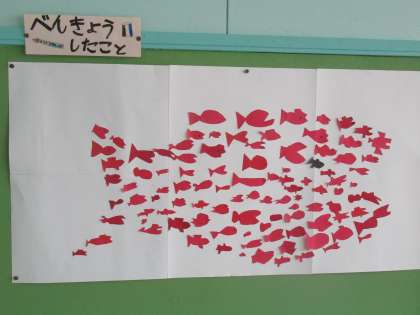 べんきょう
したこと